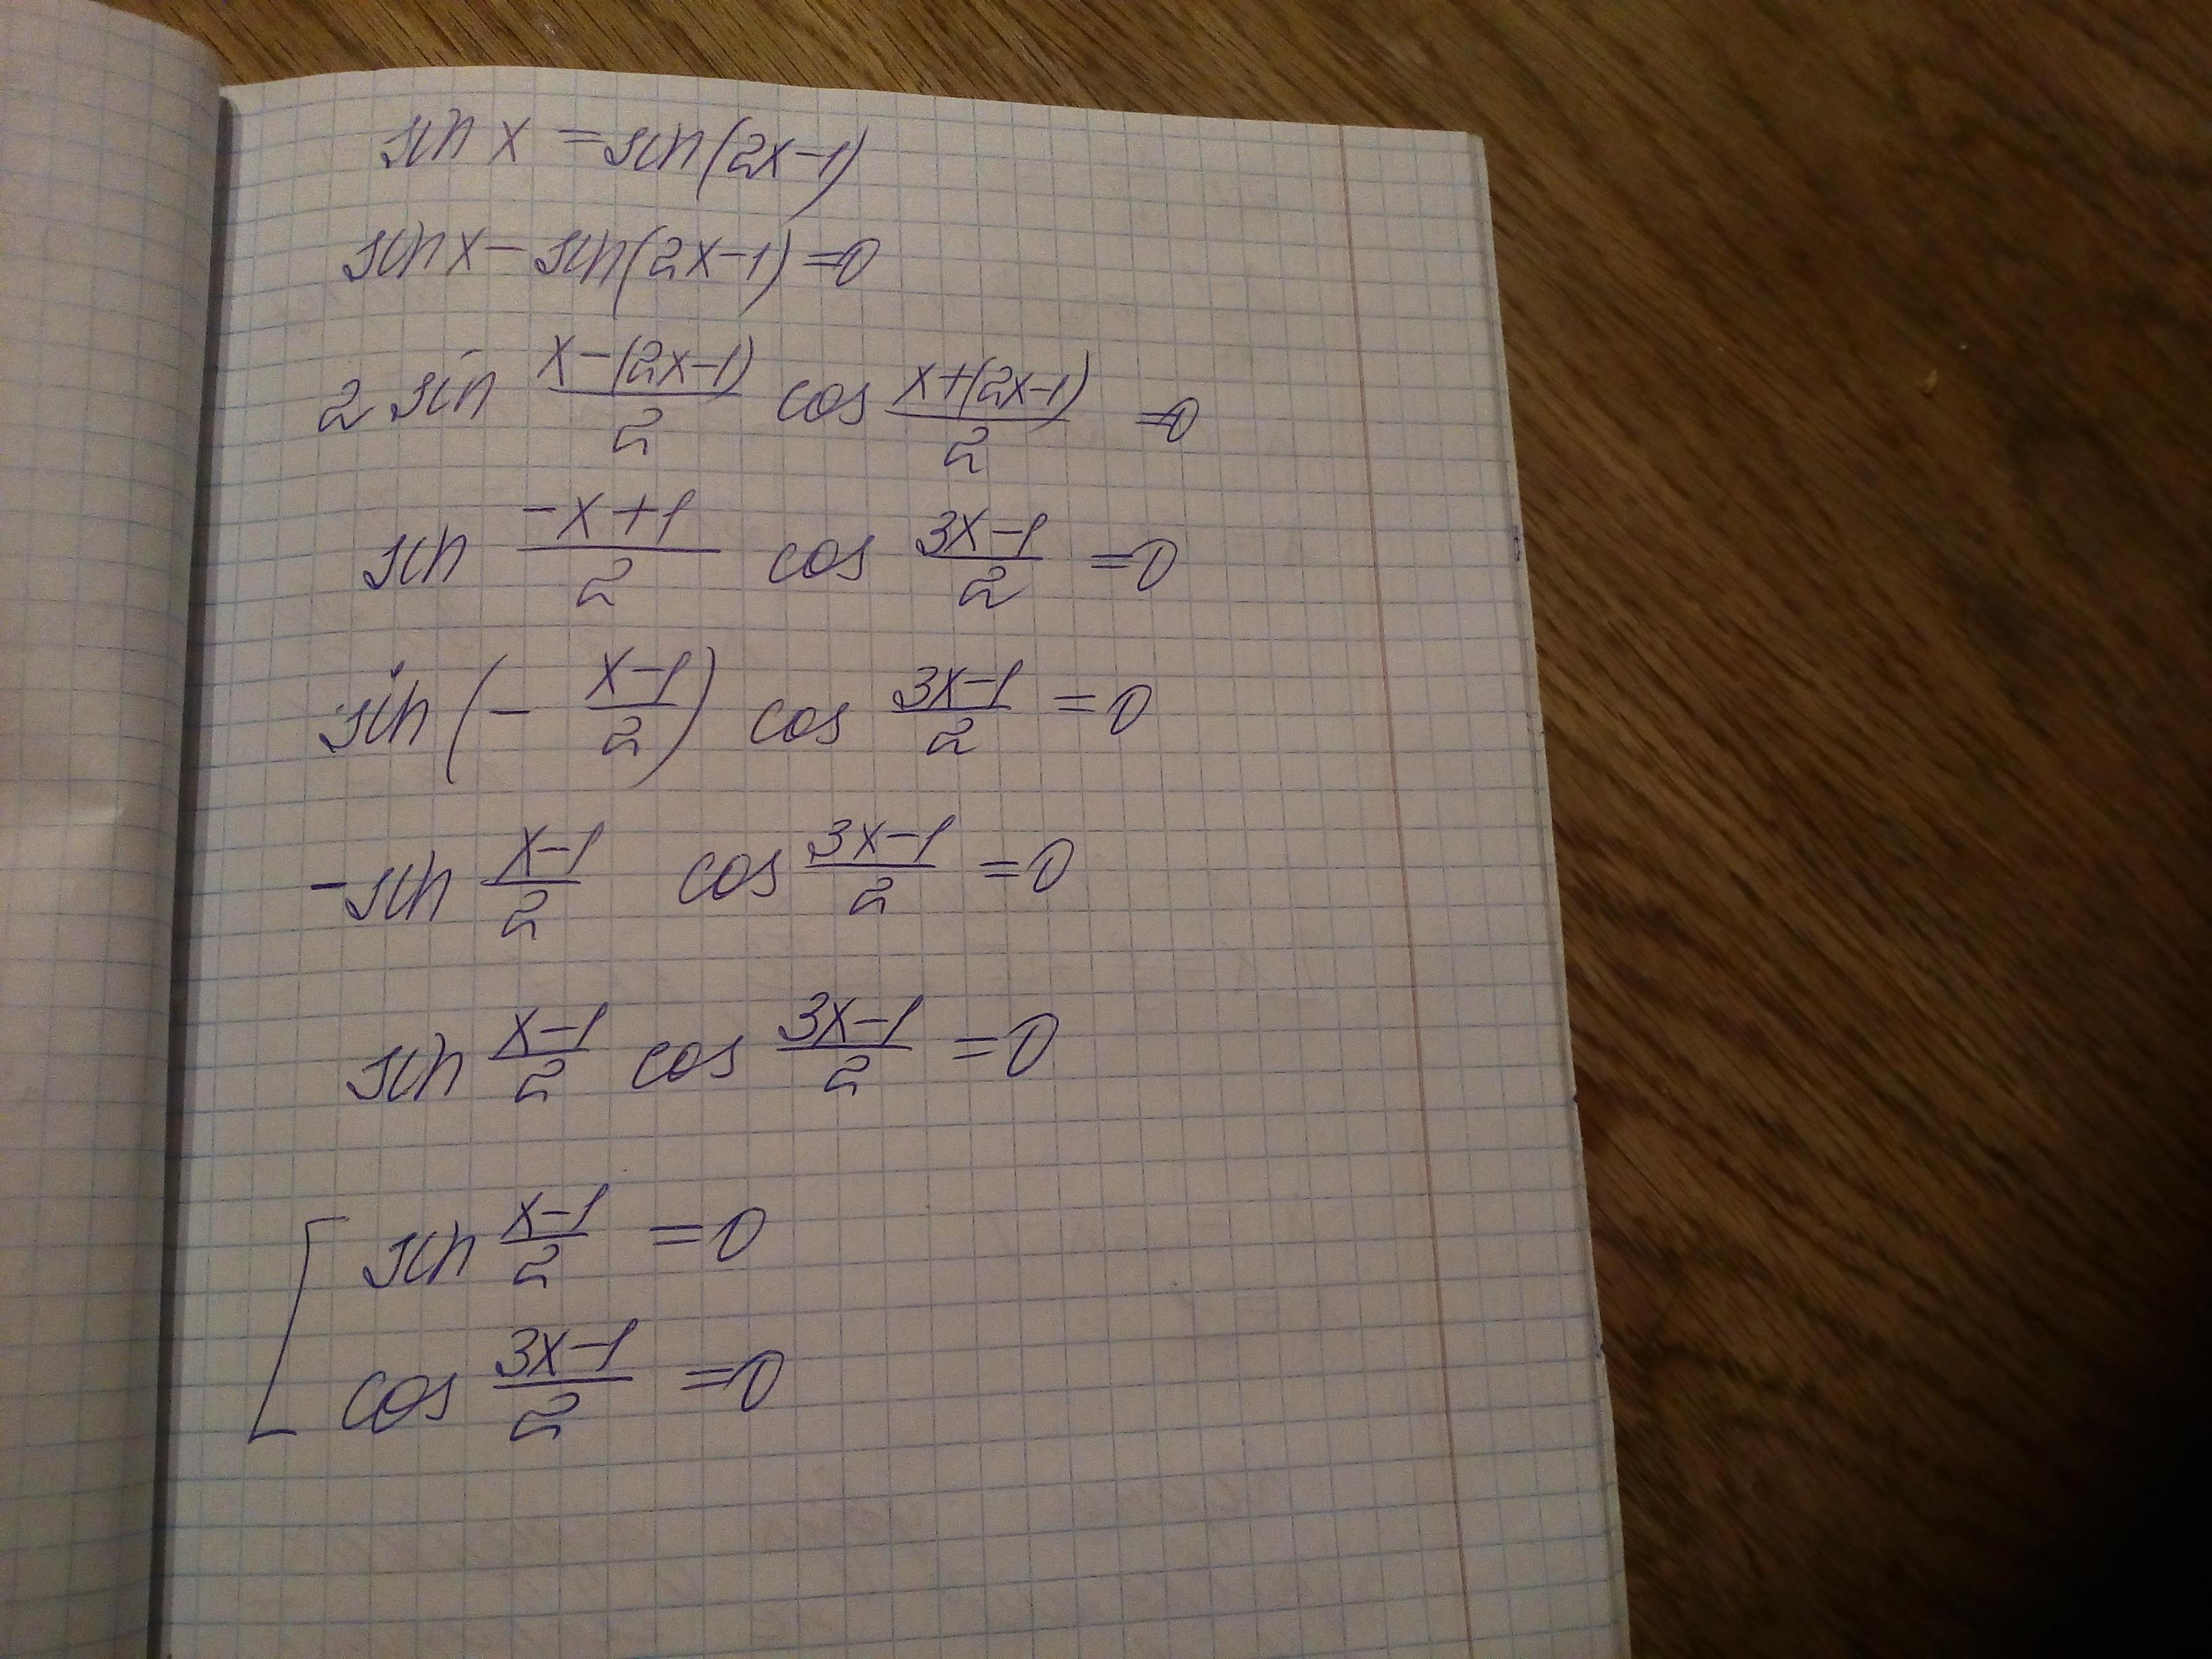 sin x = sin(2x-1)
sin x - sin(2x-1) = 0
2 sin \frac{x-(2x-1)}{2} cos \frac{x+(2x-1)}{2} = 0
sin \frac{-x+1}{2} cos \frac{3x-1}{2} = 0
sin (- \frac{x-1}{2}) cos \frac{3x-1}{2} = 0
- sin \frac{x-1}{2} cos \frac{3x-1}{2} = 0
sin \frac{x-1}{2} cos \frac{3x-1}{2} = 0
[ sin \frac{x-1}{2} = 0
cos \frac{3x-1}{2} = 0